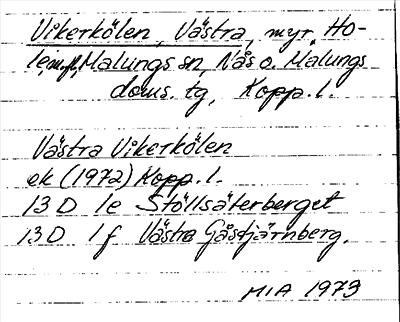 Vikerkölen, Västra, myr, Ho-
le, m.fl., Malungs sn, Nås o. Malungs
doms. tg, Kopp. l.
Västra Vikerkölen
ek (1972) Kopp. l.
13 D 1e Stöllsäterberget
13 D 1f Västra Gåstjärnberg.
MIA 1973